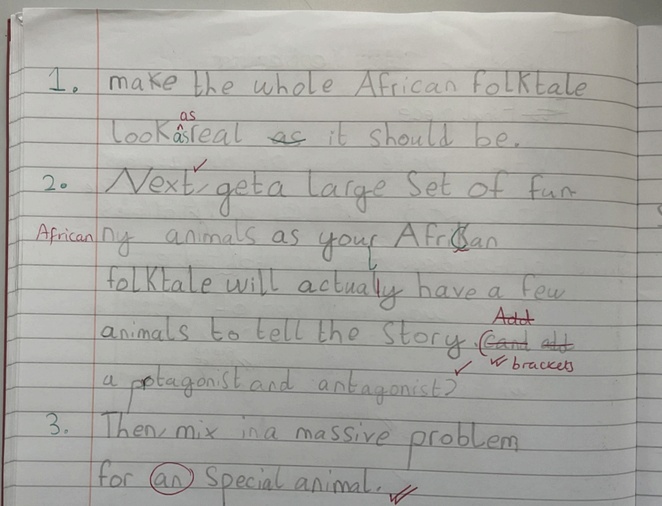 1. make the whole African folktale
as
look as real as it should be.
2. Next, get a large Set of fun
African ny animals as your African
folktale will actually have a few
animals to tell the story. (and add
Add
brackets
a potagonist and antagonist)
3. Then, mix in a massive problem
for an Special animal.